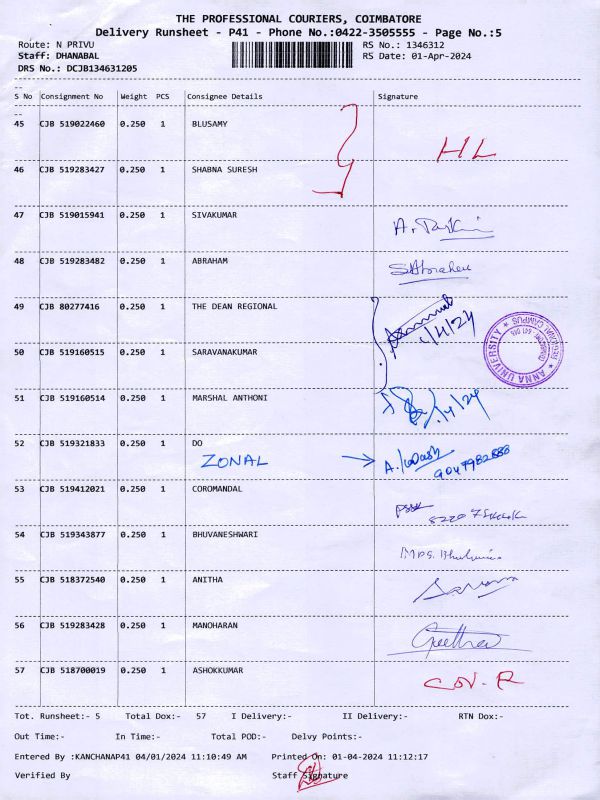 THE PROFESSIONAL COURIERS, COIMBATORE
Delivery Runsheet - P41 - Phone No.:0422-3505555 - Page No.:5
Route: N PRIVU RS No.: 1346312
Staff: DHANABAL RS Date: 01-Apr-2024
DRS No.: DCJB134631205
S No Consignment No Weight PCS Consignee Details Signature
45 CJB 519022460 0.250 1 BLUSAMY
HL
46 CJB 519283427 0.250 1 SHABNA SURESH
47 CJB 519015941 0.250 1 SIVAKUMAR
48 CJB 519283482 0.250 1 ABRAHAM
49 CJB 80277416 0.250 1 THE DEAN REGIONAL
/4/24
ANNA UNIVERSITY
REGIONAL CAMPUS
50 CJB 519160515 0.250 1 SARAVANAKUMAR
51 CJB 519160514 0.250 1 MARSHAL ANTHONI
/4/24
52 CJB 519321833 0.250 1 DO
ZONAL
53 CJB 519412021 0.250 1 COROMANDAL
54 CJB 519343877 0.250 1 BHUVANESHWARI
55 CJB 518372540 0.250 1 ANITHA
56 CJB 519283428 0.250 1 MANOHARAN
Geetha
57 CJB 518700019 0.250 1 ASHOKKUMAR
COV.R
Tot. Runsheet:- 5 Total Dox:- 57 I Delivery:- II Delivery:- RTN Dox:-
Out Time:- In Time:- Total POD:- Delvy Points:-
Entered By :KANCHANAP41 04/01/2024 11:10:49 AM Printed On: 01-04-2024 11:12:17
Verified By Staff Signature